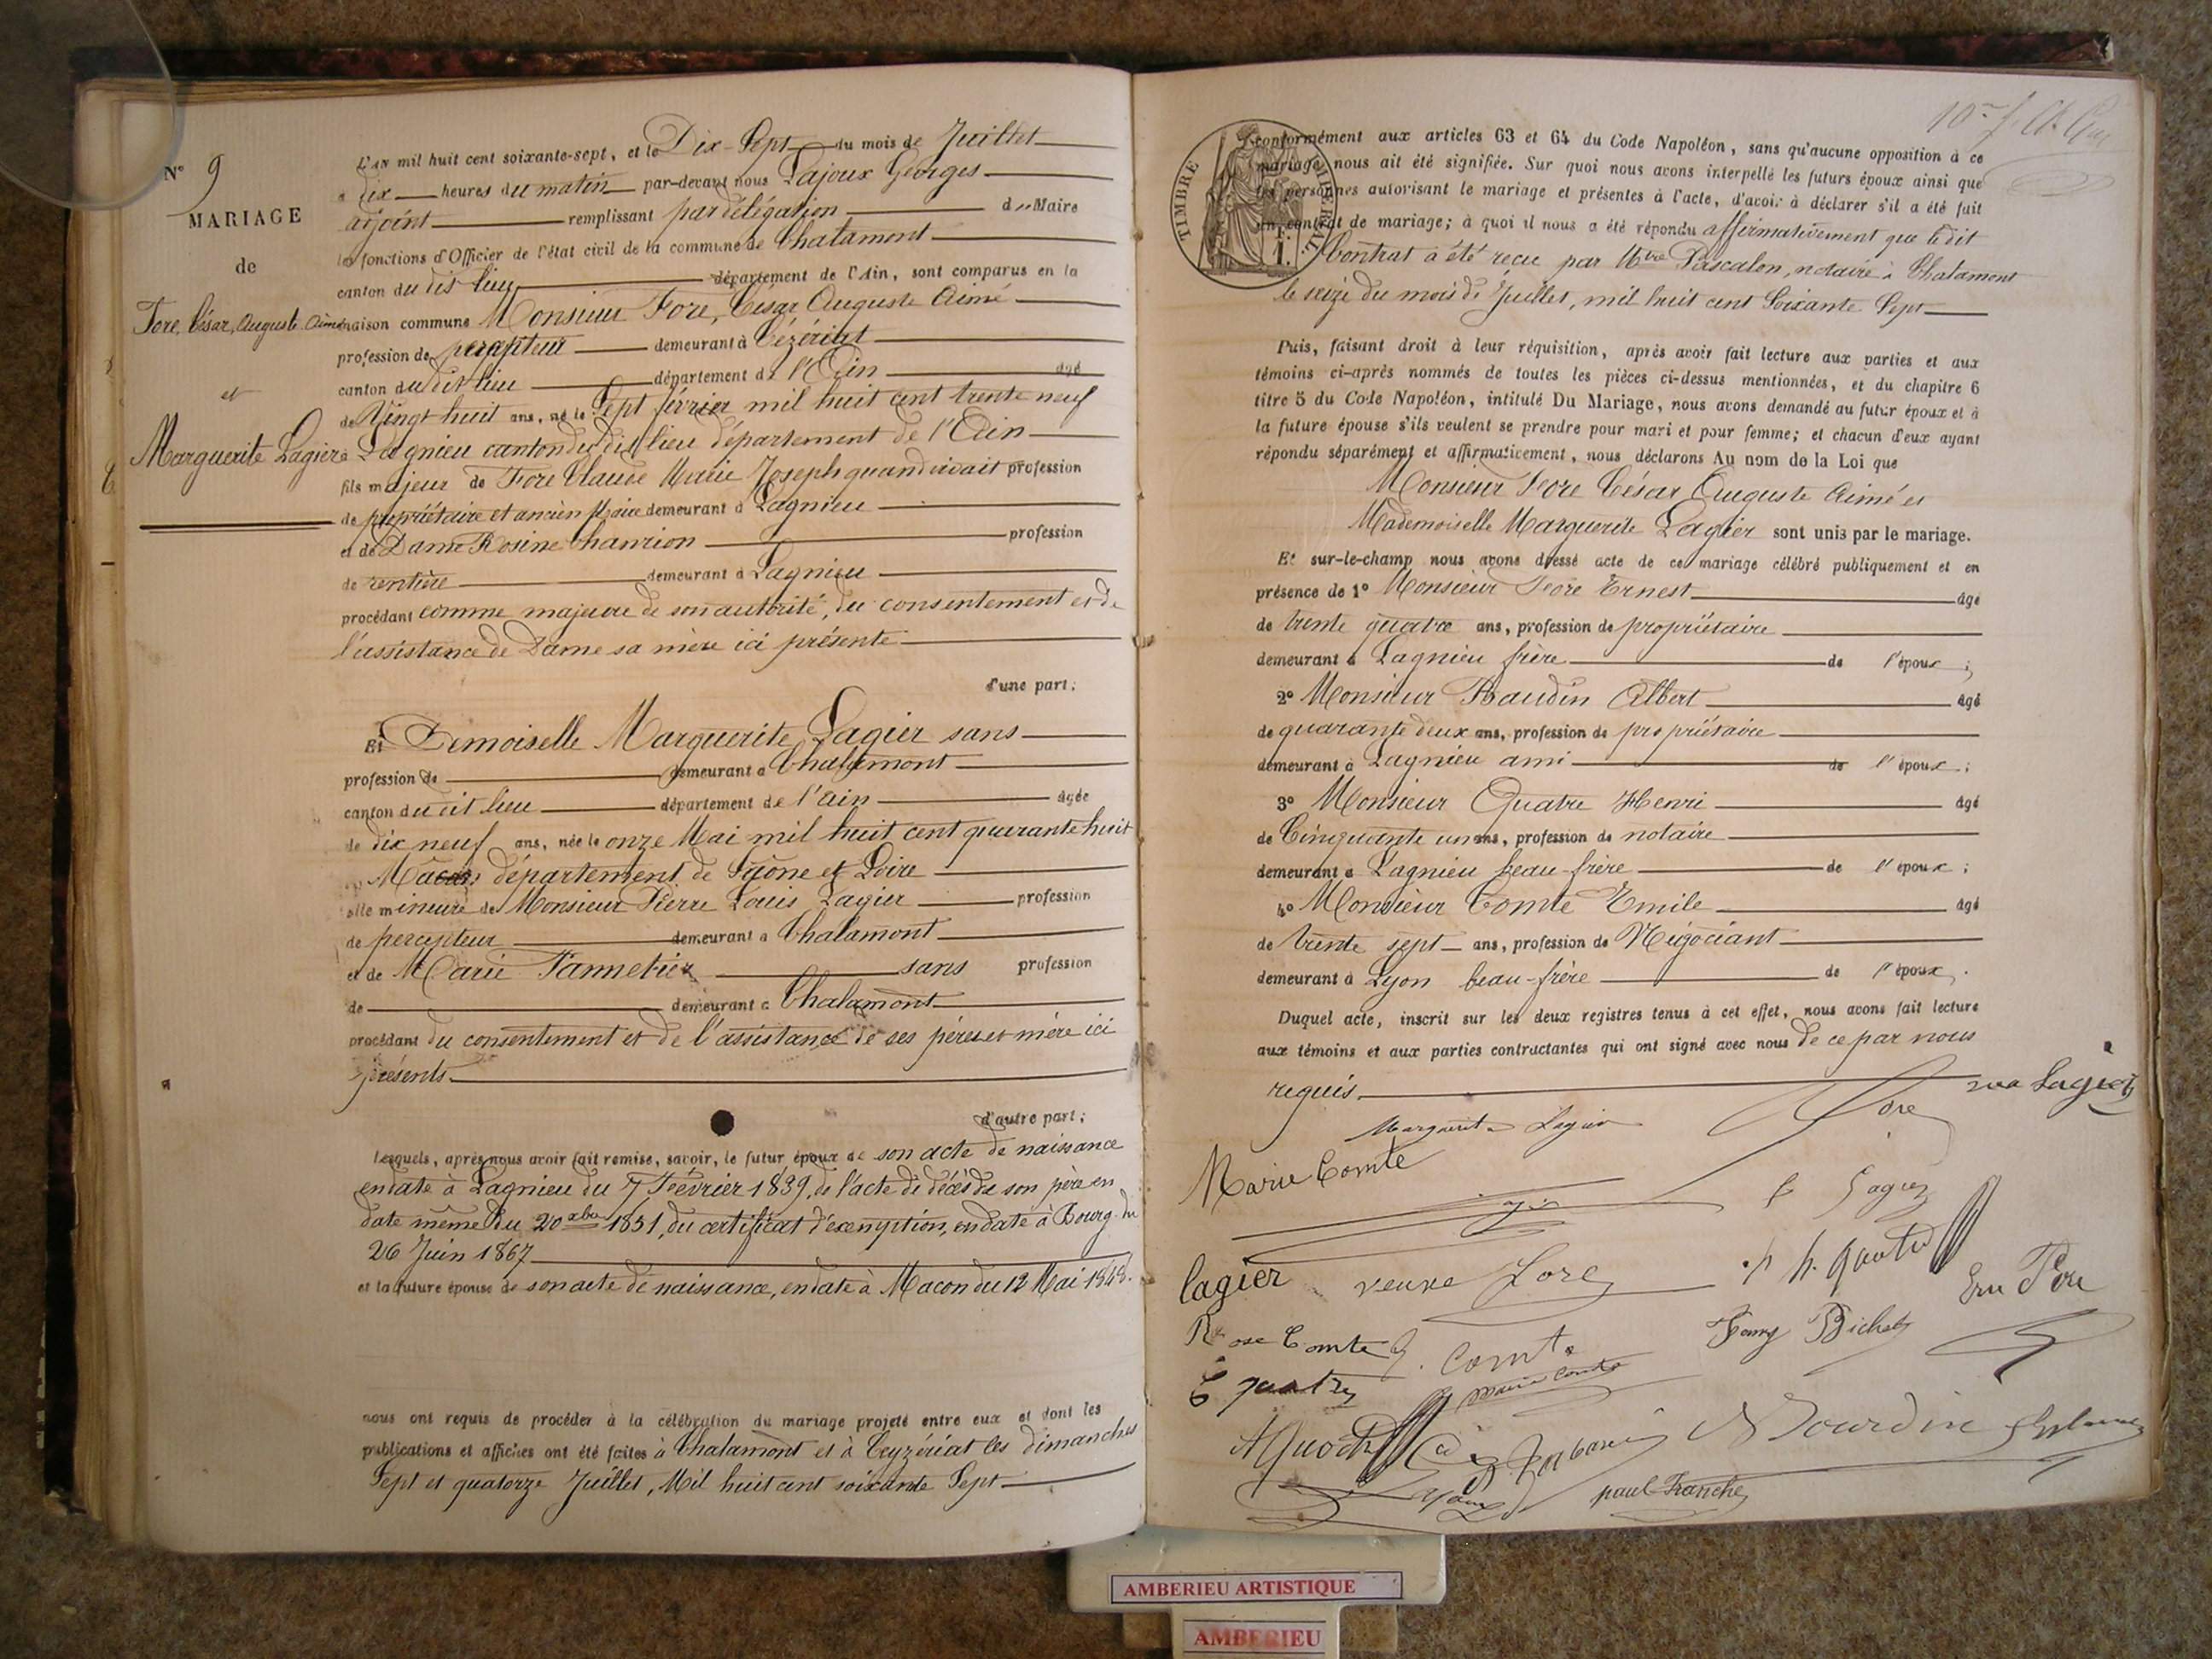 N° 9
MARIAGE
de
Fore, César, Auguste Aimé
et
Marguerite Lagier
L'An mil huit cent soixante-sept, et le Dix-Sept du mois de Juillet
à dix heures du matin par-devant nous Lajoux Georges
adjoint remplissant par délégation du Maire
les fonctions d'Officier de l'état civil de la commune de Chalamont
canton du dit lieu département de l'Ain, sont comparus en la
maison commune Monsieur Fore, César Auguste Aimé
profession de percepteur demeurant à Cézériat
canton du dit lieu département de l'Ain agé
de Vingt huit ans, né le Sept février mil huit cent trente neuf
à Lagnieu canton du dit lieu département de l'Ain
fils majeur de Fore Claude Marie Joseph quand vivait profession
de propriétaire et ancien Maire demeurant à Lagnieu
et de Dame Rosine Chanrion profession
de rentière demeurant à Lagnieu
procédant comme majeure de son autorité, du consentement et de
l'assistance de Dame sa mère ici présente
d'une part;
Et Demoiselle Marguerite Lagier sans
profession de demeurant à Chalamont
canton du dit lieu département de l'Ain âgée
de dix neuf ans, née le onze Mai mil huit cent quarante huit
à Macon département de Saône et Loire
fille mineure de Monsieur Pierre Louis Lagier profession
de percepteur demeurant à Chalamont
et de Marie Pannetier sans profession
de demeurant à Chalamont
procédant du consentement et de l'assistance de ses père et mère ici
présents
d'autre part;
Lesquels, après nous avoir fait remise, savoir, le futur époux de son acte de naissance
en date à Lagnieu du 7 Février 1839, de l'acte de décès de son père en
date même du 20 xbre 1851, du certificat d'exemption, en date à Bourg du
26 Juin 1867
et la future épouse de son acte de naissance, en date à Macon du 12 Mai 1848.
nous ont requis de procéder à la célébration du mariage projeté entre eux et dont les
publications et affiches ont été faites à Chalamont et à Ceyzériat les dimanches
Sept et quatorze Juillet, Mil huit cent soixante Sept
TIMBRE IMPERIAL
conformément aux articles 63 et 64 du Code Napoléon, sans qu'aucune opposition à ce
mariage nous ait été signifiée. Sur quoi nous avons interpellé les futurs époux ainsi que
les personnes autorisant le mariage et présentes à l'acte, d'avoir à déclarer s'il a été fait
un contrat de mariage; à quoi il nous a été répondu affirmativement que ledit
Contrat a été reçu par Mtre Pascalon, notaire à Chalamont
le seize du mois de Juillet, mil huit cent Soixante Sept
Puis, faisant droit à leur réquisition, après avoir fait lecture aux parties et aux
témoins ci-après nommés de toutes les pièces ci-dessus mentionnées, et du chapitre 6
titre 5 du Code Napoléon, intitulé Du Mariage, nous avons demandé au futur époux et à
la future épouse s'ils veulent se prendre pour mari et pour femme; et chacun d'eux ayant
répondu séparément et affirmativement, nous déclarons Au nom de la Loi que
Monsieur Fore César Auguste Aimé et
Mademoiselle Marguerite Lagier sont unis par le mariage.
Et sur-le-champ nous avons dressé acte de ce mariage célébré publiquement et en
présence de 1° Monsieur Fore Ernest âgé
de trente quatre ans, profession de propriétaire
demeurant à Lagnieu frère de l'époux;
2° Monsieur Baudin Albert âgé
de quarante deux ans, profession de propriétaire
demeurant à Lagnieu ami de l'époux;
3° Monsieur Quatre Henri âgé
de Cinquante un ans, profession de notaire
demeurant à Lagnieu beau-frère de l'époux;
4° Monsieur Comte Emile âgé
de trente sept ans, profession de Négociant
demeurant à Lyon beau-frère de l'époux.
Duquel acte, inscrit sur les deux registres tenus à cet effet, nous avons fait lecture
aux témoins et aux parties contractantes qui ont signé avec nous de ce par nous
requis.
Marguerite Lagier Fore Lagier
Marie Comte
Lagier veuve Fore h. Quatre Fore
Rose Comte E. Comte Fany Bichet
E quatre Marie Comte
Bourdin
Lajoux paul Franche
AMBERIEU ARTISTIQUE
AMBERIEU